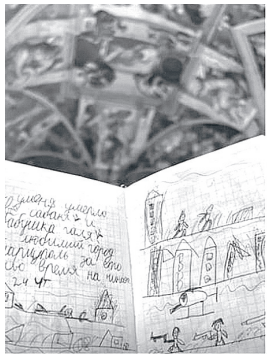 у меня умерло
2 сабаки и
бабушка галя и
любимий город
мариуполь за это
во время на чиная
24 ч